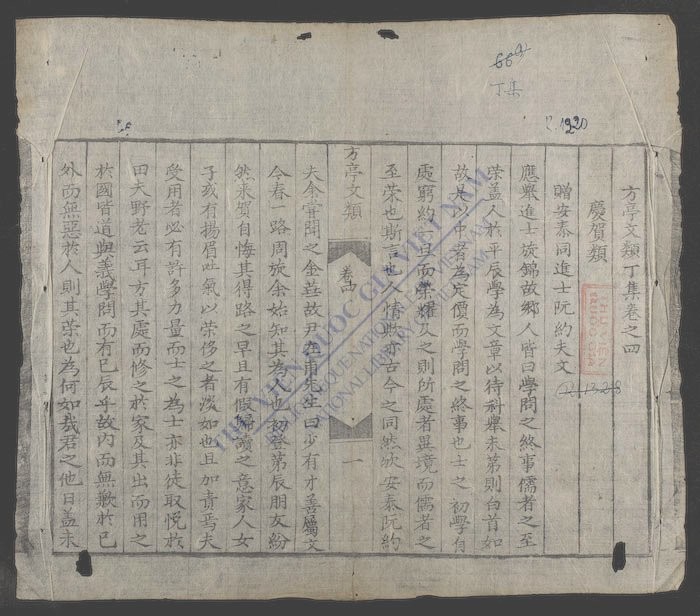 66a
丁集
R.1920
方亭文類丁集卷之四
慶賀類
贈安泰同進士阮約夫文
應舉進士旋錦故鄉人皆曰學問之終事儒者之至
榮盖人於平辰學為文章以待科舉未第則白首如
故是以中者為定價而學問之終事也士之初學自
處窮約一旦而榮耀及之則所處者異境而儒者之
至榮也斯言也人情既亦古今之同然欤安泰阮約
方亭文類
卷四
一
夫余嘗聞之金莊故尹在甫先生曰少有才善屬文
今春一路周旋余始知其為人也初登第辰朋友紛
然來賀自悔其得路之早且有假歸讀之意家人女
子或有揚眉吐氣以榮侈之者淡如也且加責焉夫
受用者必有許多力量而士之為士亦非徒取悅於
田夫野老云耳方其處而修之於家及其出而用之
於國皆道與義學問而有已辰乎故內而無歉於己
外而無惡於人則其榮也為何如哉君之他日盖未
THƯ VIỆN QUỐC GIA VIỆT NAM
BIBLIOTHÈQUE NATIONALE DU VIETNAM
NATIONAL LIBRARY OF VIETNAM